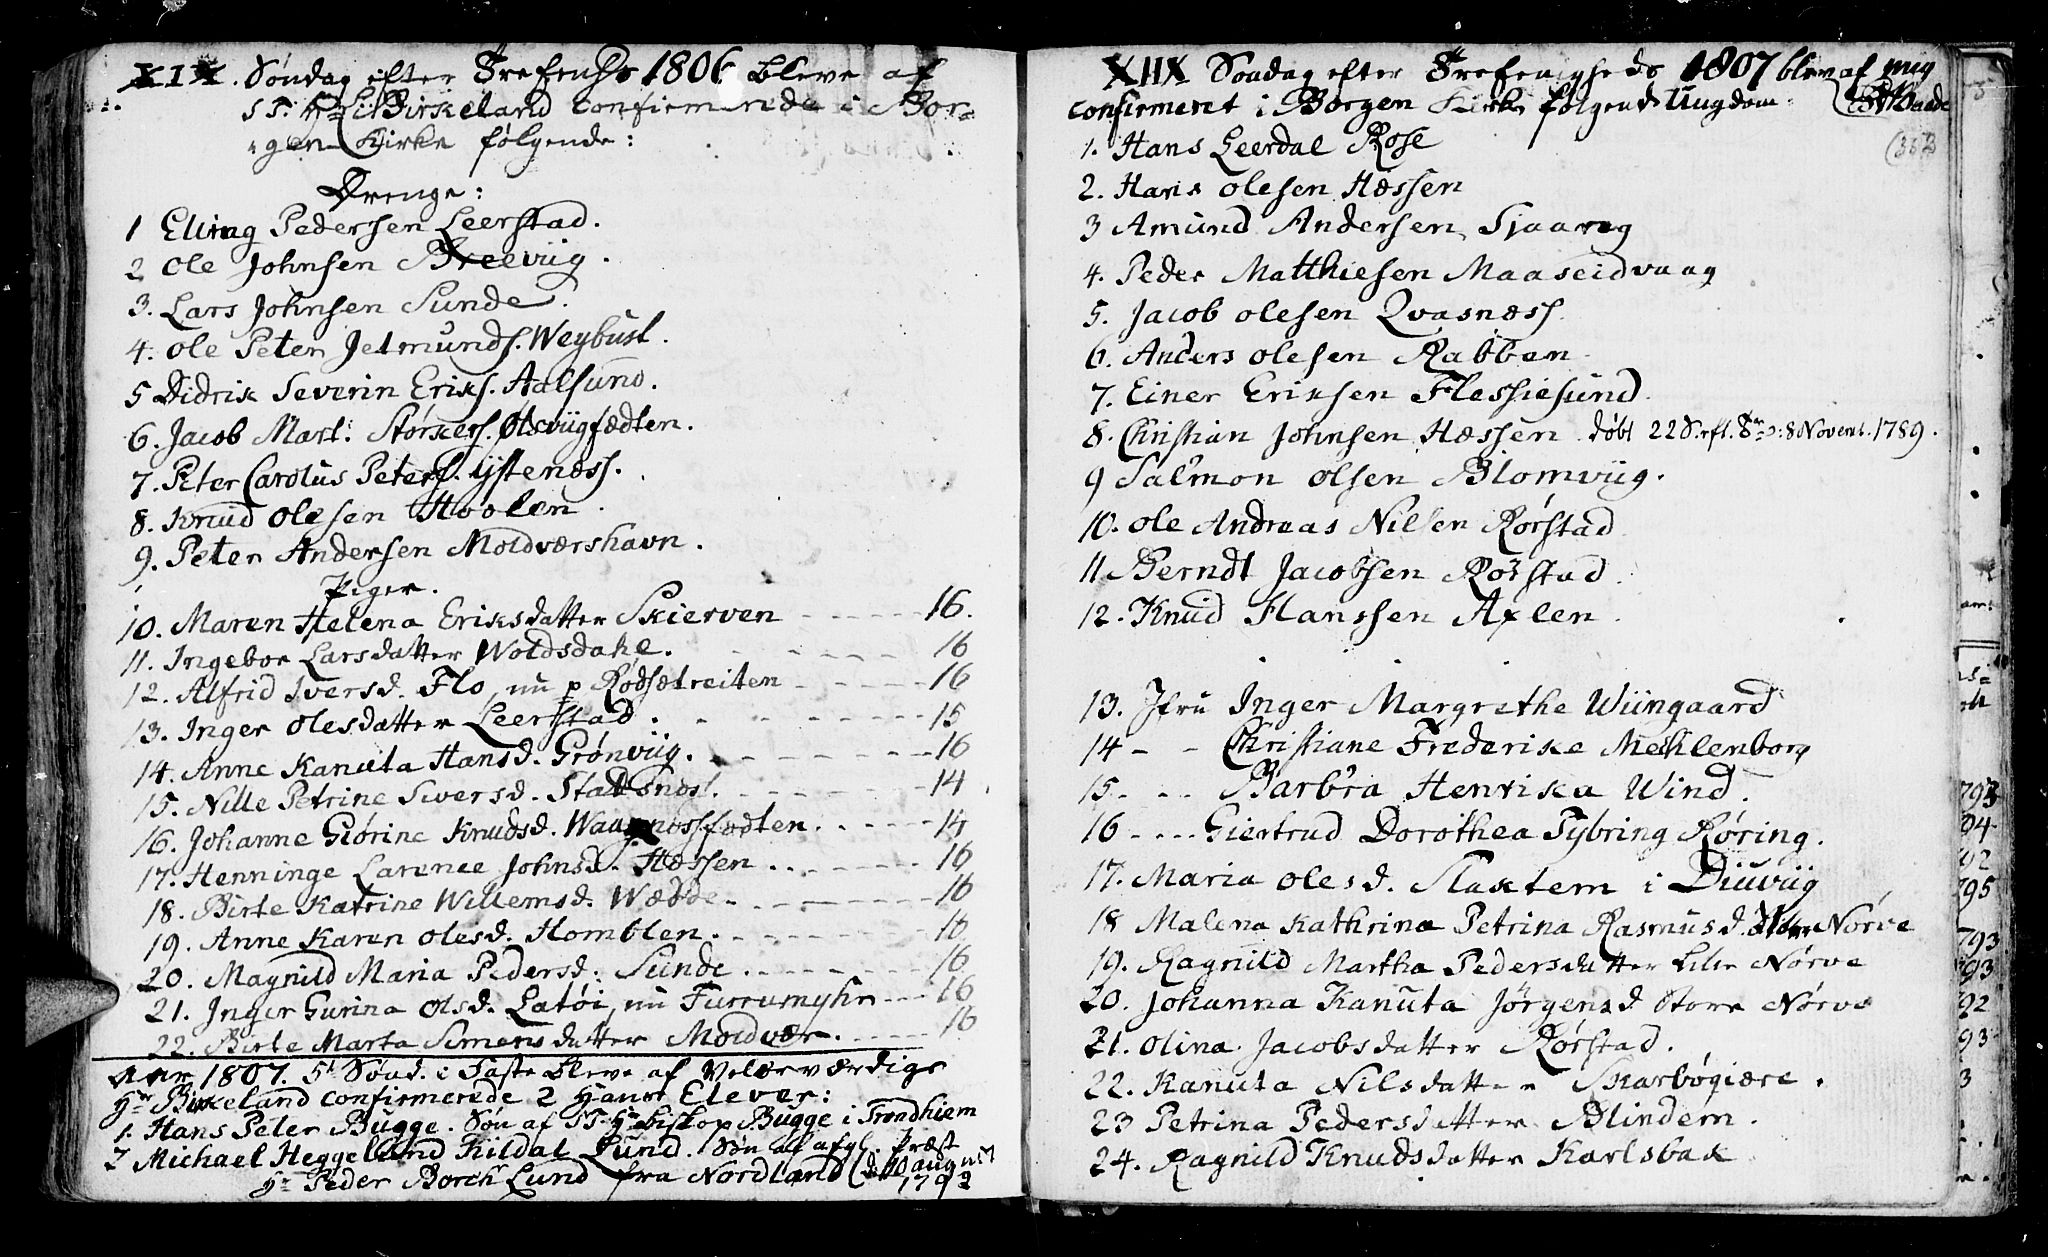 XIX. Søndag efter Trefenhds 1806 bleve af
S T. Hr Birkeland confirmerede i Bor-
gen Kirke følgende:
Drenge:
1 Elling Pedersen Leerstad.
2 Ole Johnsen Breeviig.
3. Lars Johnsen Sunde.
4. Ole Peter Jetmunds. Wegbust.
5 Didrik Severin Eriks. Aalsund.
6. Jacob Mart: Størkers. Olsviigfædten.
7. Peter Carolus Peters. Ystenæss.
8. Knud Olesen Hoolen.
9. Peter Andersen Moldværshavn.
Piger.
10. Maren Helena Eriksdatter Skierven - - - - 16.
11. Ingebor Larsdatter Woldsdahl. - - - - 16
12. Alfrid Iversd. Flo, nu p Rødsetreiten - - - 16
13. Inger Olesdatter Leerstad. - - - - 15
14. Anne Kanuta Hansd. Grønviig. - - - - 16
15. Nille Petrine Siversd. Stattsnæs. - - - - 14
16. Johanne Giørine Knudsd. Waagnæssfædten. - - - 14
17. Henninge Larenee Johnsd. Hæssen - - - - 16
18. Birte Katrine Willemsd. Wædde - - - - 16
19. Anne Karen Olesd. Homblen. - - - - 16
20. Magnild Maria Pedersd: Sunde - - - - 16
21. Inger Gurina Olsd. Latøi, nu Furrumyhr - - - 16
22. Birte Marta Simensdatter Moldvær. - - - - 16
Aar 1807. 5t Sønd. i Faste bleve af Velærværdige
Hr Birkeland confirmerede 2 Hans Elever:
1. Hans Peter Bugge. Søn af ST. Hr Biskop Bugge i Trondhiem
2 Michael Heggelund Kildal Lund. Søn af afg. Præst
Hr Peder Borch Lund fra Nordland (d. 10 aug
1792
XIIX Søndag efter Trefenigheds 1807 blev af mig
confirmeret i Borgen Kirke følgende Ungdom.
1. Hans Leerdal Rose
2. Hans Olesen Hæssen
3 Amund Andersen Sjaaeng
4. Peder Matthiesen Maaseidvaag
5. Jacob Olesen Qvasnæss
6. Anders Olesen Rabben
7. Einer Eriksen Flessiesund
8. Christian Johnsen Hæssen. døbt 22 S. eft. Tr. 8 Novemb. 1789.
9 Salmon Olsen Blomviig.
10. Ole Andreas Nilsen Rørstad
11 Berndt Jacobsen Rørstad
12. Knud Hanssen Axlen.
13. Jfru Inger Margrethe Wiingaard
14 - - Christiane Frederike Mecklenborg
15. - - Barbra Henrika Wind.
16 - - - Giertrud Dorothea Tybring Røring.
17. Maria Olesd. Slaktem i Diuviig
18 Malena Kathrina Petrina Rasmusd. Nørve
19. Ragnild Martha Pedersdatter Lille Nørve
20. Johanna Kanuta Jørgensd Store Nørve
21. Olina Jacobsdatter Rørstad.
22. Kanuta Nilsdatter Skarbøgiære.
23 Petrina Pedersdatter Blindem.
24. Ragnild Knudsdatter Karlsbak